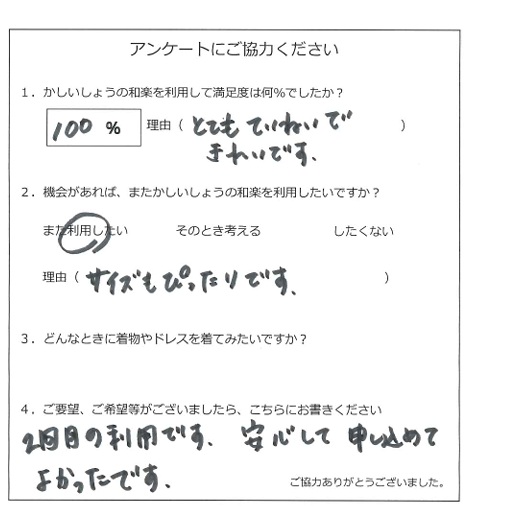 アンケートにご協力ください
1．かしいしょうの和楽を利用して満足度は何％でしたか？
100 ％ 理由（ とてもていねいで ）
きれいです、
2．機会があれば、またかしいしょうの和楽を利用したいですか？
また利用したい そのとき考える したくない
理由（ サイズもぴったりです、 ）
3．どんなときに着物やドレスを着てみたいですか？
4．ご要望、ご希望等がございましたら、こちらにお書きください
2回目の利用です、安心して申し込めて
よかったです、
ご協力ありがとうございました。